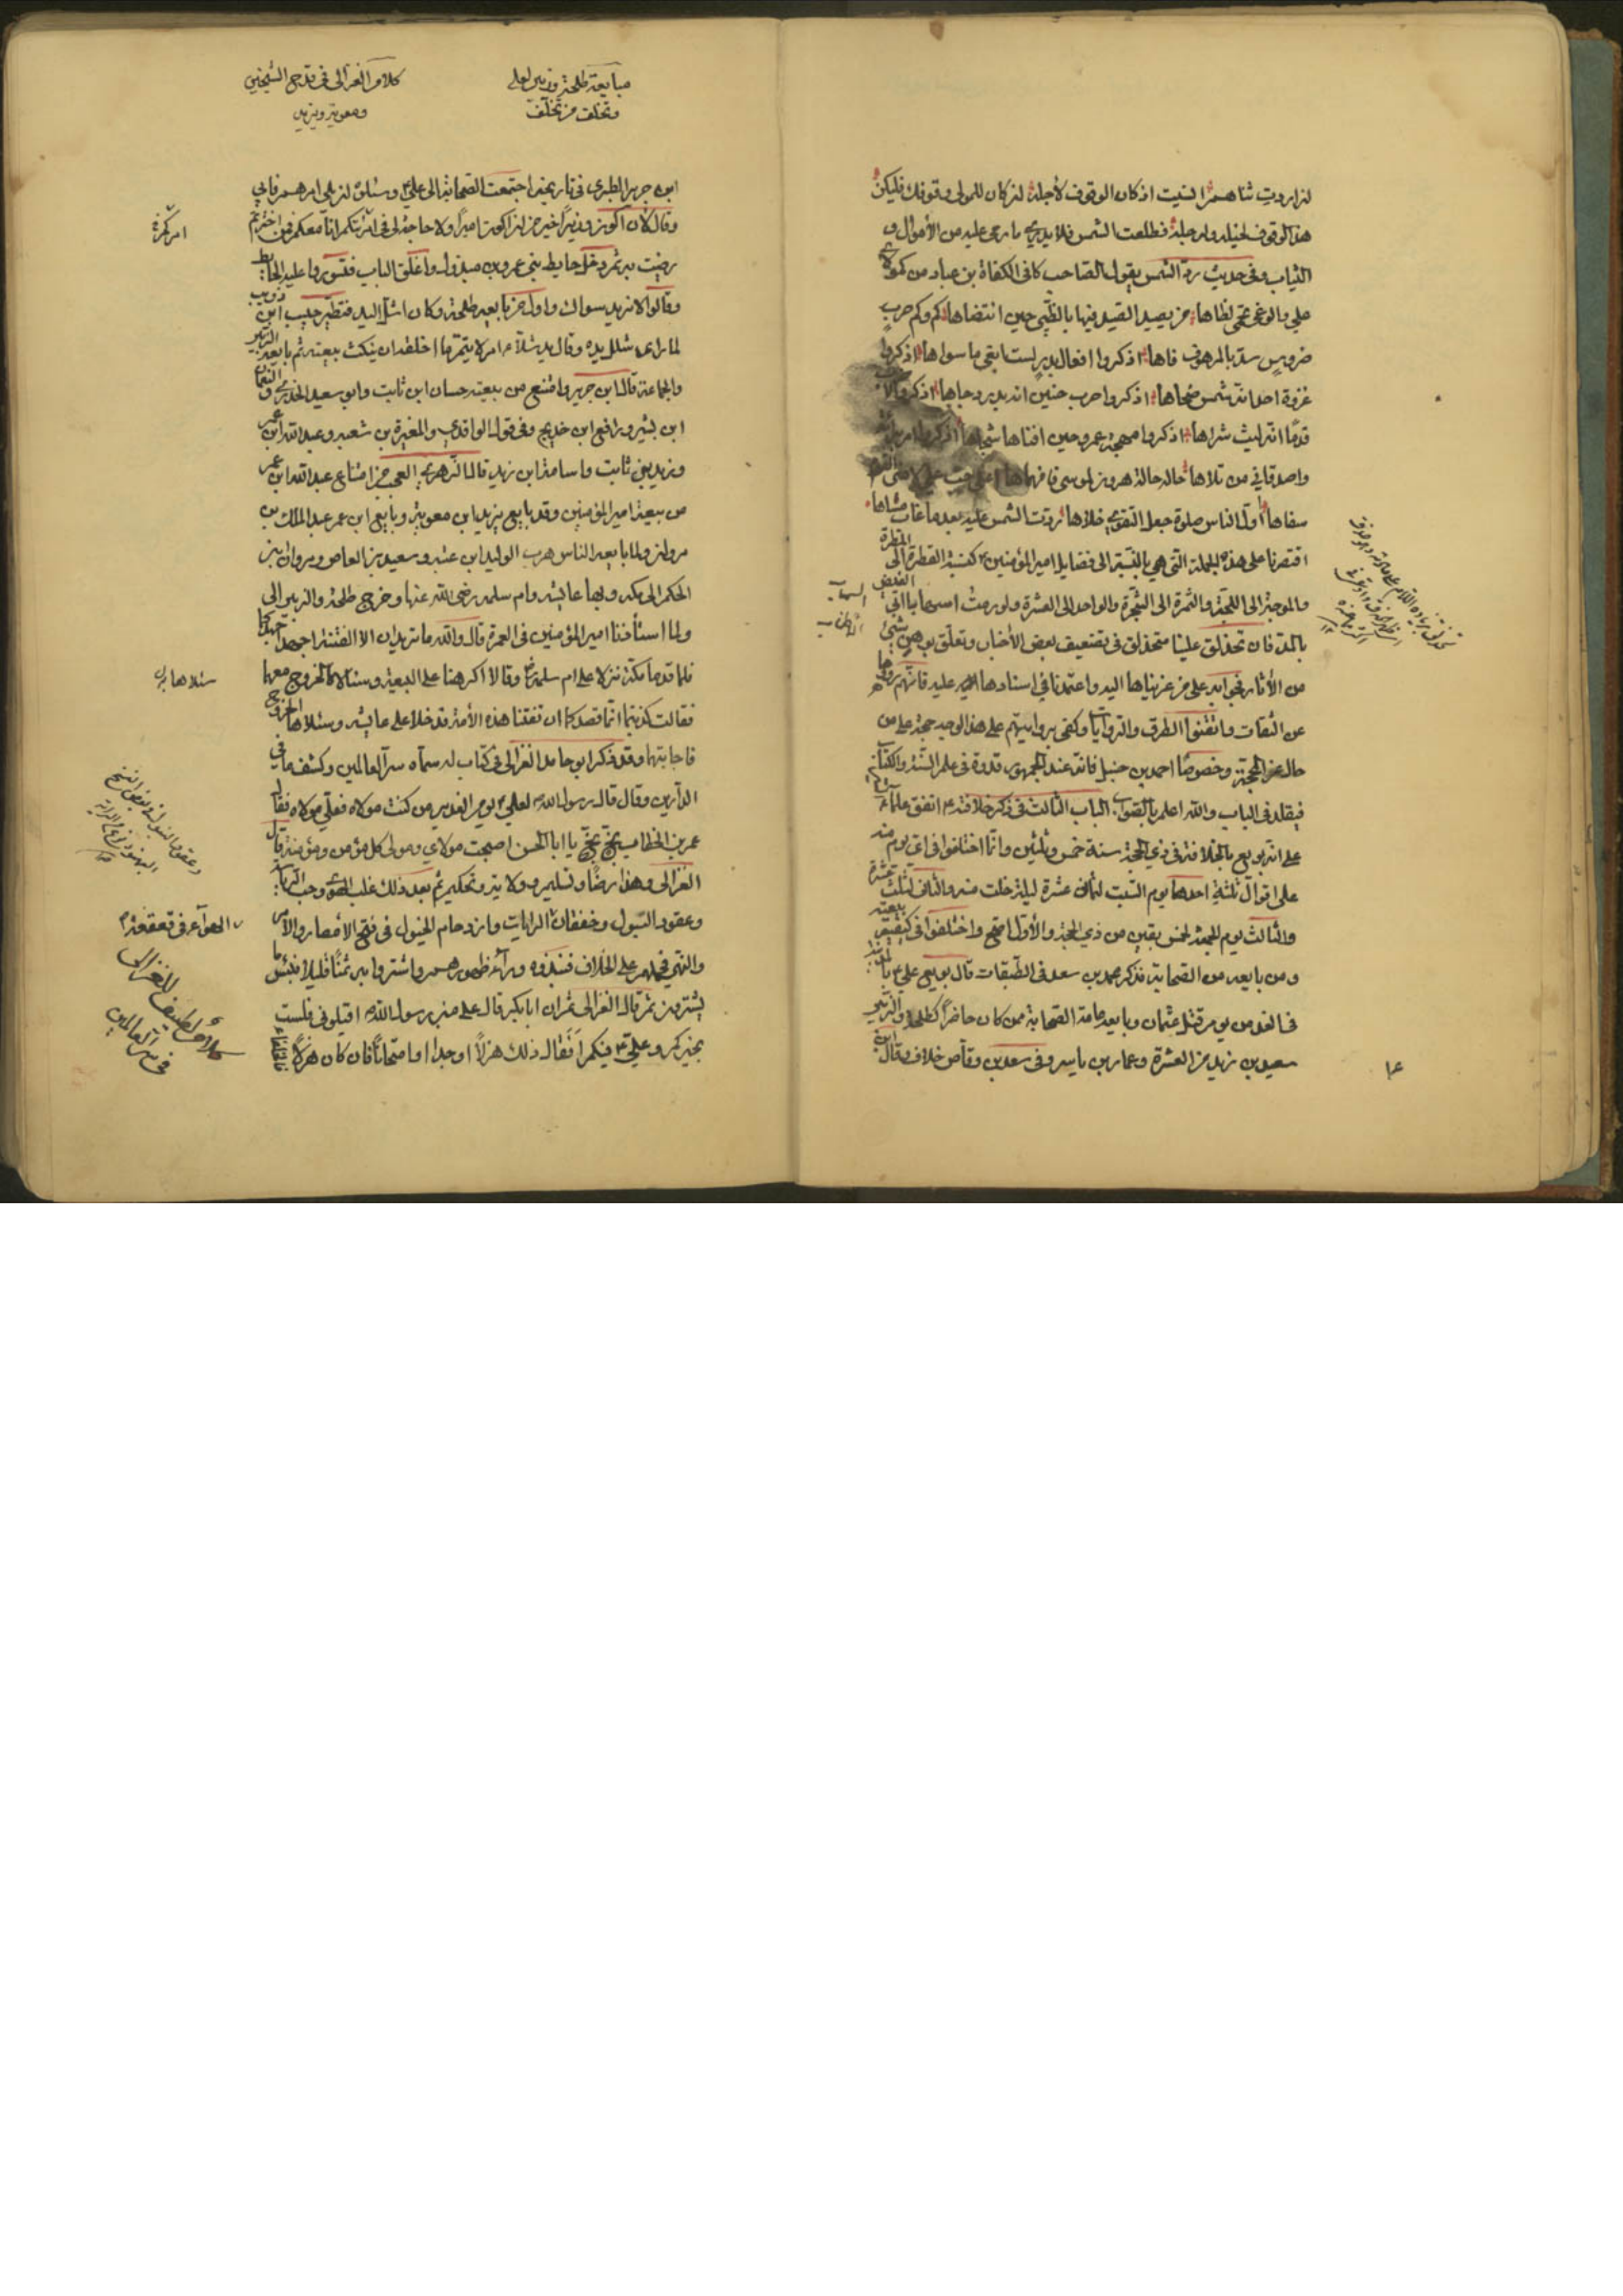 لن اروت ثناهم انسيت اذ كان الوقوف لأجله لئن كان للمولى وقوفك فليكن
هذا الوقوف لخيله ولرجله فطلعت الشمس فلا يدرى ما رمى عليه من الأموال و
الثياب وفى حديث ردّ الشمس يقول الصاحب كافى الكفاة بن عباد من كمولاى
على والوغى تحمى لظاها من يصيد الصيد فيها بالظبى حين انتضاها كم وكم حرب
ضروس سدّ بالمرهف فاها اذكروا افعال بدر لست ابغى ما سواها اذكروا
غزوة احد انه شمس ضحاها اذكروا حرب حنين انه بدر دجاها اذكروا الأحزاب
قدمًا انه ليث شراها اذكروا مهجة عمرو حين افناها شجاها اذكروا امر براءة
واصدقانى من تلاها حاله حالة هرون لموسى فافهماها اعلى حب على لامنى القوم
سفاها اول الناس صلوة جعل التقوى حلاها ردت الشمس عليه بعد ما غاب سناها
اقتصرنا على هذه الجملة التى هى بالنسبة الى فضايل امير المؤمنين كنسبة القطرة الى المطرة
والموجة الى اللجة والثمرة الى الشجرة والواحد الى العشرة
بالمد فان تحذلق علينا متحذلق فى تضعيف بعض الأخبار وتعلق بوهن شئ
من الأثار فجوابه على من عزيناها اليه واعتمدنا فى اسنادها عليه فانهم رووها
عن الثقات واتقنوا الطرق والروايات وكفى بروايتهم على هذا الوجه حجة على من
حاد عن المحجة وخصوصًا احمد بن حنبل فانه عند الجمهور قدوة فى علم السنة والكتاب
فيقلد فى الباب والله اعلم بالصواب الباب الثالث فى ذكر خلافته اتفق علماء
على انه بويع بالخلافة فى ذى الحجة سنة خمس وثلثين وانما اختلفوا فى اى يوم منه
على اقوال ثلثة احدها يوم السبت لثمان عشرة ليلة خلت منه والثانى لثلث عشرة
والثالث يوم الجمعة لخمس بقين من ذى الحجة والأول اصح واختلفوا فى كيفية بيعته
ومن بايعه من الصحابة فذكر محمد بن سعد فى الطبقات قال بويع على بالمدينة
فى الغد من يوم قتل عثمان وبايعه عامة الصحابة ممن كان حاضرًا كطلحة والزبير
سعيد بن زيد من العشرة وعمار بن ياسر وفى سعد بن وقاص خلاف وقال ابن
مبايعة طلحة وزبير لعلى
وتخلف من تخلف
كلام الغزالى فى قدح الشيخين
ومعوية ويزيد
ابن جرير الطبرى فى تاريخه اجتمعت الصحابة الى على وسئلوه ان يلى امرهم فابى
وقال لأن اكون وزيرًا خير من ان اكون اميرًا ولا حاجة لى فى امرتكم انا معكم فمن اخترتم
رضيت به ثم دخل حايط بنى عمرو بن مبذول واغلق الباب فتسوروا عليه الحايط
وقالوا لا نريد سواك واول من بايعه طلحة وكان اشل اليد فتطير حبيب ابن ذويب
لما راى شلل يده وقال يد شلاء امر لا يتم ما اخلفه ان ينكث بيعته ثم بايعه الزبير
والجماعة قال ابن جرير وامتنع من بيعته حسان ابن ثابت وابو سعيد الخدرى والنعمان
ابن بشير ورافع ابن خديج وفى قول الواقدى والمغيرة بن شعبه وعبد الله ابن عمر
وزيد بن ثابت واسامة ابن زيد قال الزهرى العجب من امتناع عبد الله ابن عمر
من بيعة امير المؤمنين وقد بايع يزيد ابن معوية وبايع ابن عمر عبد الملك بن
مروان ولما بايعه الناس هرب الوليد ابن عتبه وسعيد بن العاص ومروان بن
الحكم الى مكه وبها عايشه وام سلمه رضى الله عنها وخرج طلحة والزبير الى
ولما استأذنا امير المؤمنين فى العمرة قال والله ما تريدان الا الفتنة اجهدا جهدكما
فلما قدما مكة نزلا على ام سلمة وقالا اكرهنا على البيعة وسئالاها الخروج معهما
فقالت كذبتما انما قصدكما ان تفتنا هذه الأمة قد خلا على عايشه وسئلاها الخروج
فاجابتهما وقد ذكر ابو حامد الغزالى فى كتاب له سماه سر العالمين وكشف ما فى
الدارين وقال قال رسول الله لعلى يوم الغدير من كنت مولاه فعلى مولاه فقال
عمر بن الخطاب بخ بخ يا ابا الحسن اصبحت مولاى ومولى كل مؤمن ومؤمنة قال
الغزالى وهذا رضًا وتسليم وولاية وتحكيم ثم بعد ذلك غلب الهوى وحب الرياسة
وعقود البنود وخفقان الرايات وازدحام الخيول فى فتح الأمصار والأمر
والنهى فحملهم على الخلاف فنبذوه وراء ظهورهم واشتروا به ثمنًا قليلا فبئس ما
يشترون ثم قال الغزالى ثم ان ابا بكر قال على منبر رسول الله اقيلونى فلست
بخيركم وعلى فيكم أفقال ذلك هزلا او جدا او امتحانًا فان كان هزلا
سئلاها
كلام لطيف للغزالى
فى سر العالمين